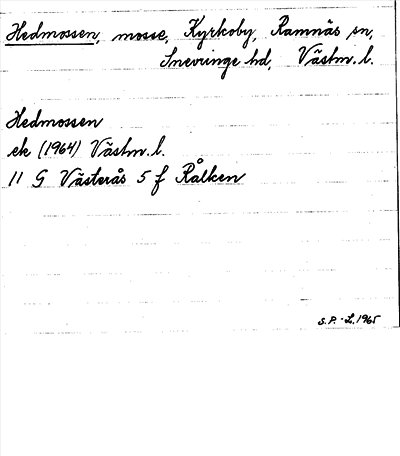 Hedmossen, mosse, Kyrkoby, Ramnäs sn,
Snevringe hd, Västm. l.
Hedmossen
ek (1964) Västm. l.
11 G Västerås 5 f Rålken
S.P. - L. 1965